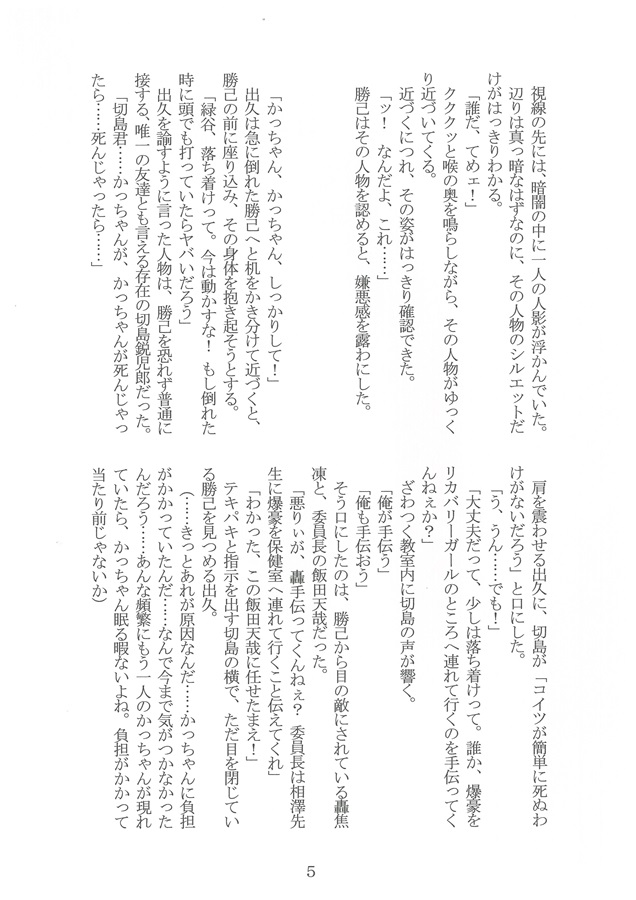 視線の先には、暗闇の中に一人の人影が浮かんでいた。
辺りは真っ暗なはずなのに、その人物のシルエットだ
けがはっきりわかる。
「誰だ、てめェ！」
ククククッと喉の奥を鳴らしながら、その人物がゆっく
り近づいてくる。
近づくにつれ、その姿がはっきり確認できた。
「ッ！　なんだよ、これ……」
勝己はその人物を認めると、嫌悪感を露わにした。
「かっちゃん、かっちゃん、しっかりして！」
出久は急に倒れた勝己へと机をかき分けて近づくと、
勝己の前に座り込み、その身体を抱き起そうとする。
「緑谷、落ち着けって。今は動かすな！　もし倒れた
時に頭でも打っていたらヤバいだろう」
出久を諭すように言った人物は、勝己を恐れず普通に
接する、唯一の友達とも言える存在の切島鋭児郎だった。
「切島君……かっちゃんが、かっちゃんが死んじゃっ
たら……死んじゃったら……」
肩を震わせる出久に、切島が「コイツが簡単に死ぬわ
けがないだろう」と口にした。
「う、うん……でも！」
「大丈夫だって、少しは落ち着けって。誰か、爆豪を
リカバリーガールのところへ連れて行くのを手伝ってく
んねぇか？」
ざわつく教室内に切島の声が響く。
「俺が手伝う」
「俺も手伝おう」
そう口にしたのは、勝己から目の敵にされている轟焦
凍と、委員長の飯田天哉だった。
「悪りぃが、轟手伝ってくんねぇ？　委員長は相澤先
生に爆豪を保健室へ連れて行くこと伝えてくれ」
「わかった、この飯田天哉に任せたまえ！」
テキパキと指示を出す切島の横で、ただ目を閉じてい
る勝己を見つめる出久。
（……きっとあれが原因なんだ……かっちゃんに負担
がかかっていたんだ……なんで今まで気がつかなかった
んだろう……あんな頻繁にもう一人のかっちゃんが現れ
ていたら、かっちゃん眠る暇ないよね。負担がかかって
当たり前じゃないか）
5